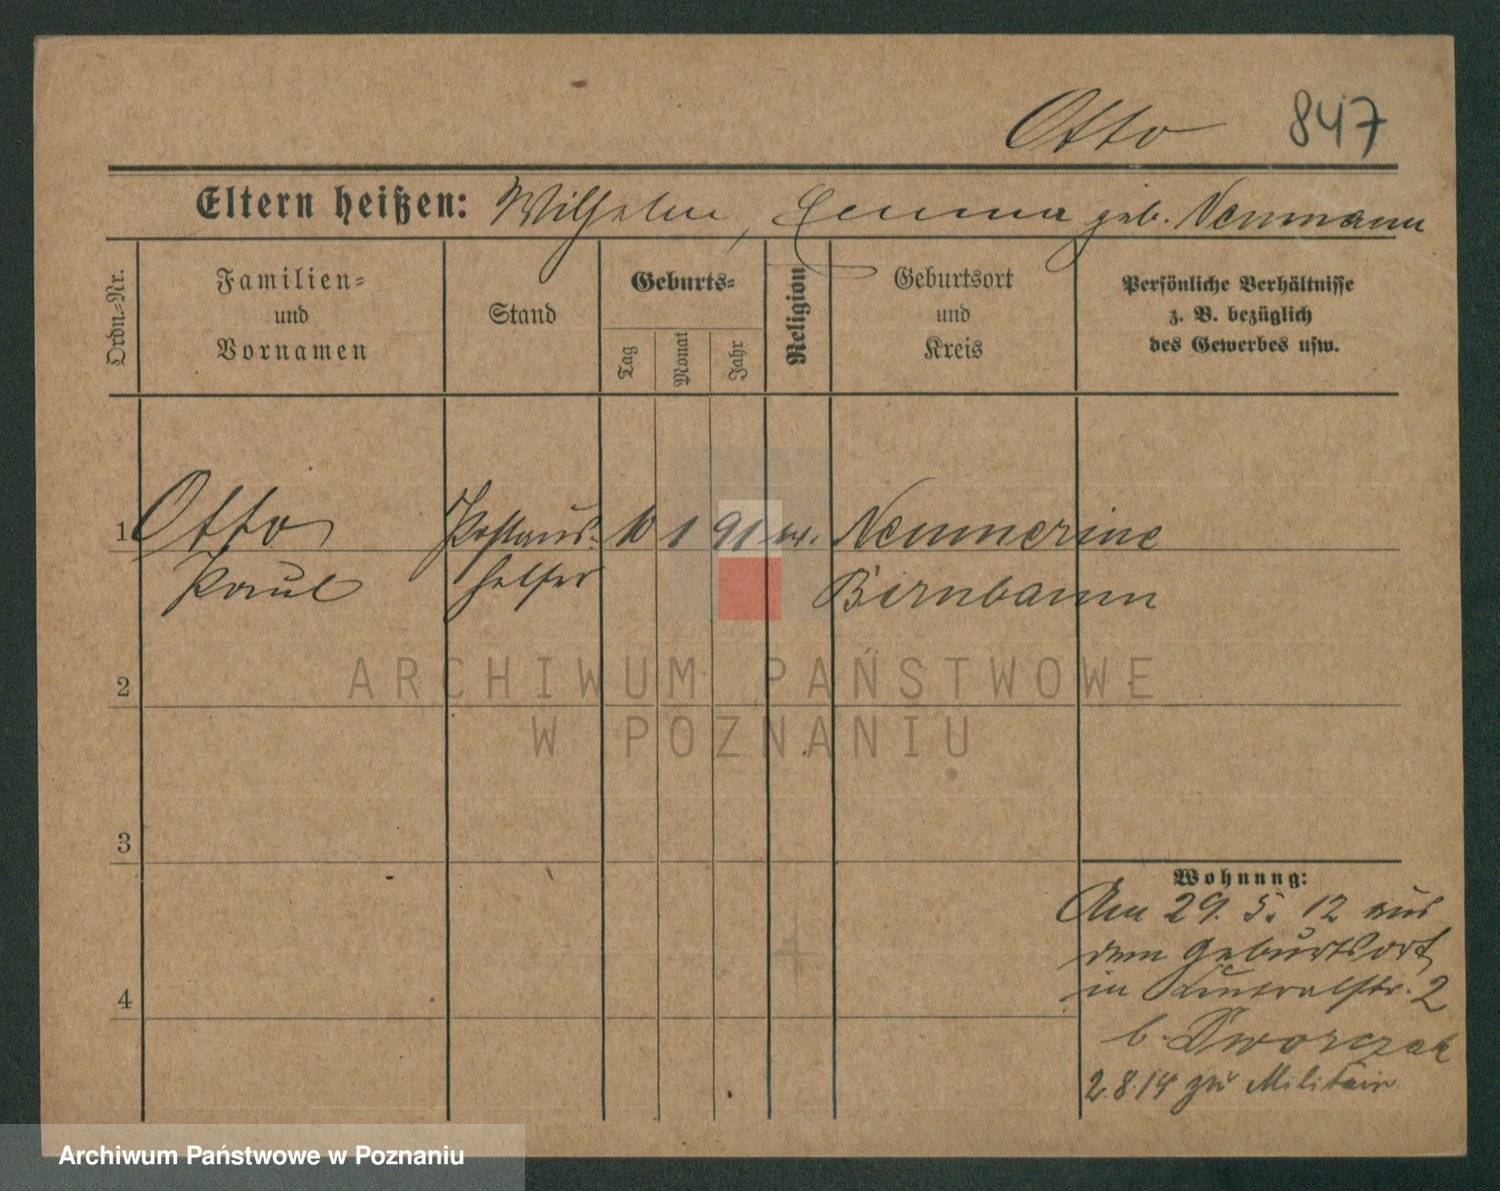 Otto 847
Eltern heißen: Wilhelm, Emma geb. Neumann
Ordn.-Nr.
Familien-
und
Vornamen
Stand
Geburts-
Tag
Monat
Jahr
Religion
Geburtsort
und
Kreis
Persönliche Verhältnisse
z. B. bezüglich
des Gewerbes usw.
1 Otto Postaus- 10 1 91 ev. Neumerine
Paul helfer Birnbaum
2
3
4
Wohnung:
Am 29. 5. 12 aus
dem Geburtsort
in 2
b. Dworczak
2.8.14 zu Militair
ARCHIWUM PAŃSTWOWE
W POZNANIU
Archiwum Państwowe w Poznaniu